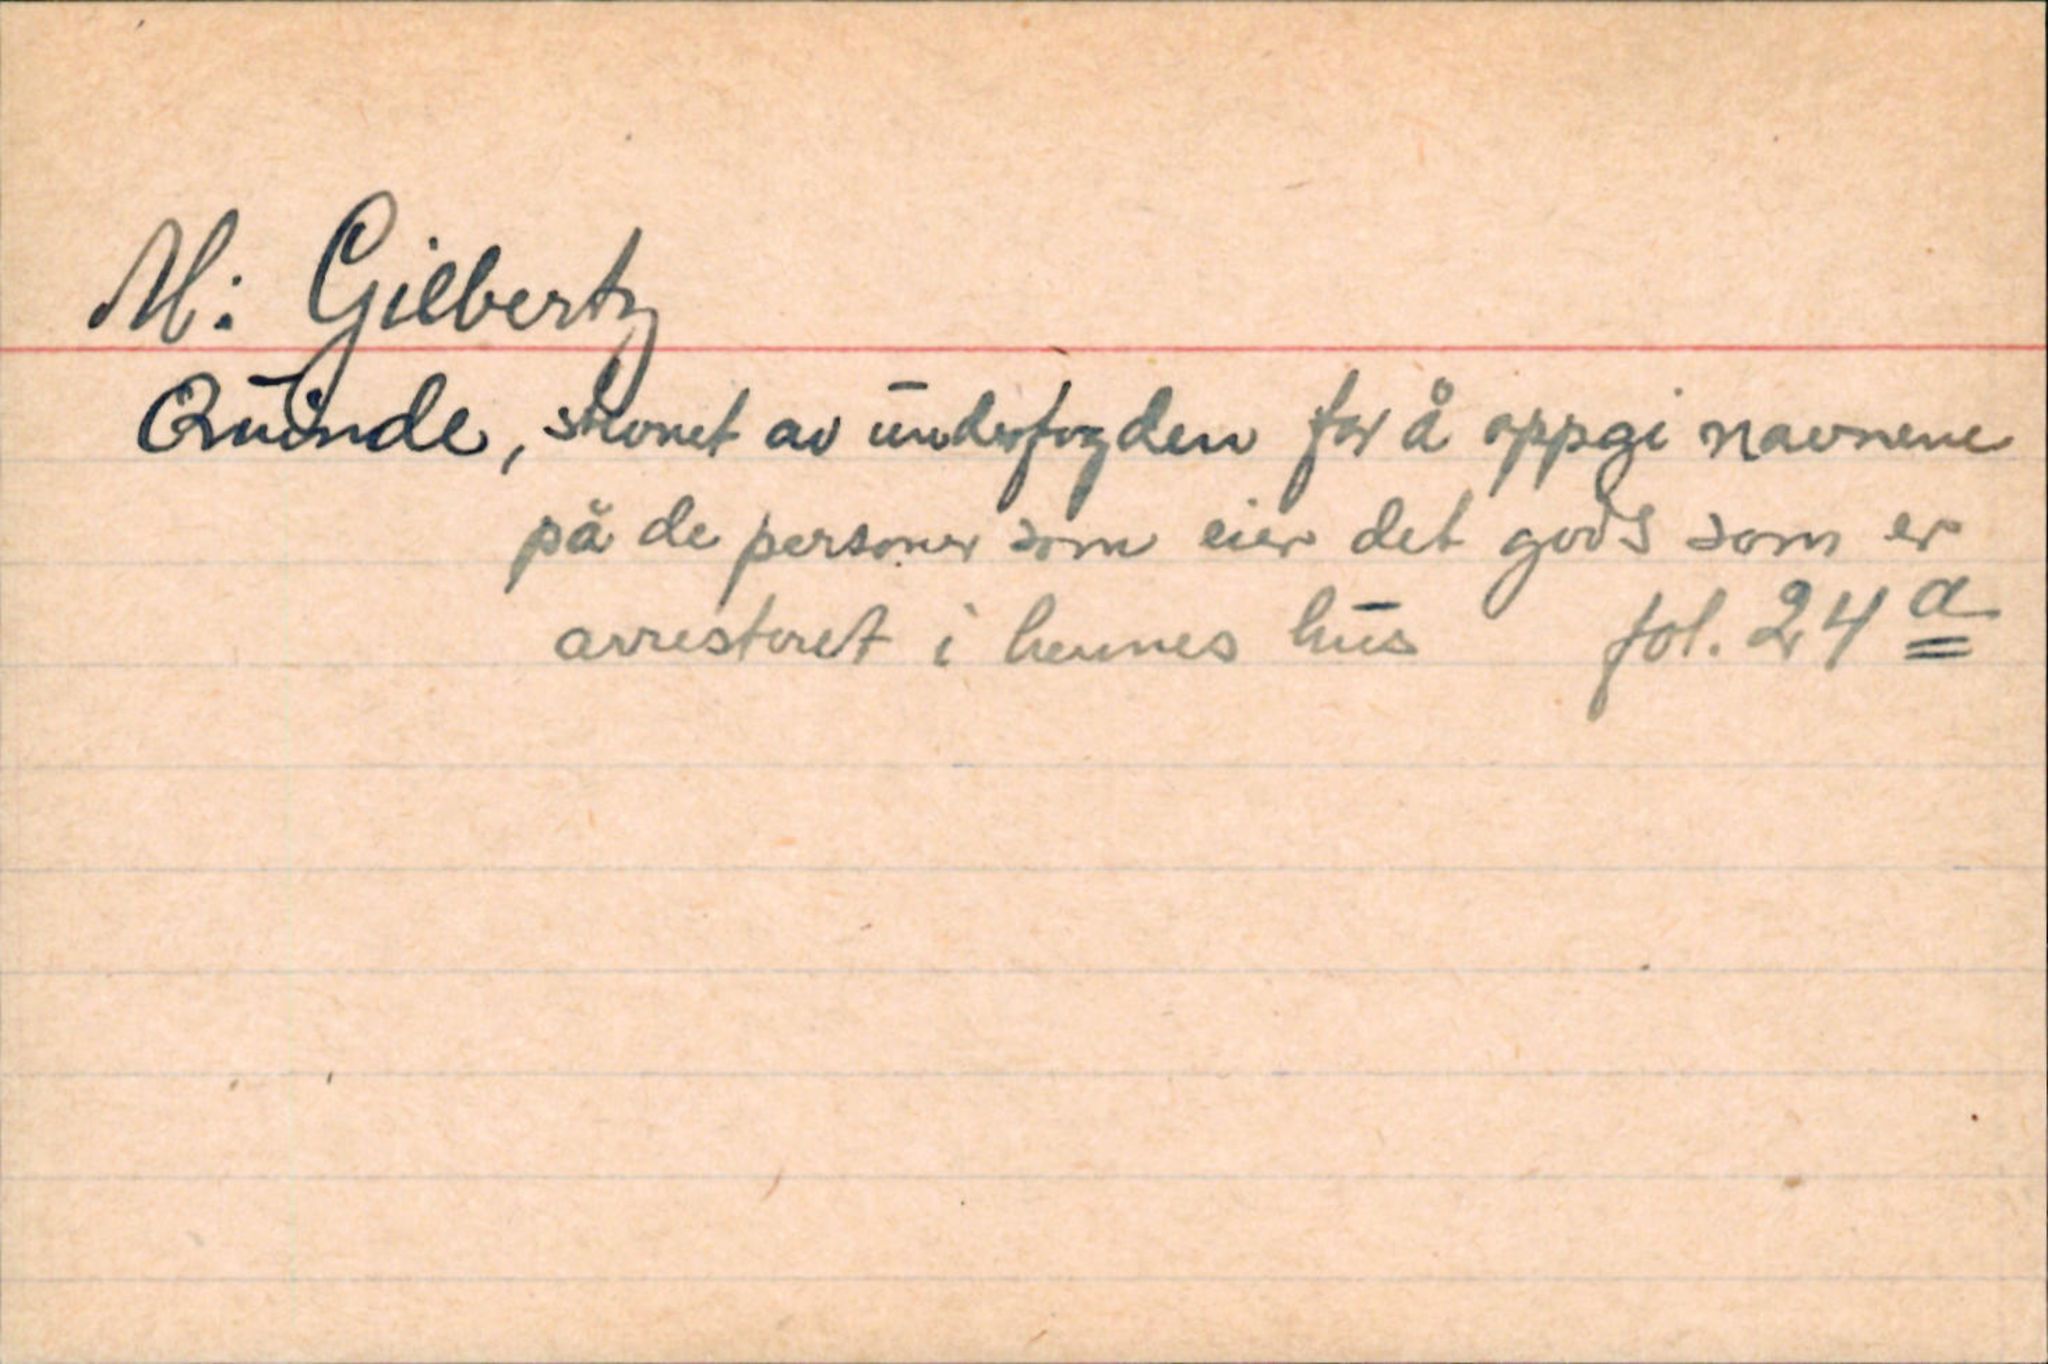 M: Gilbertz
Quinde, skonet av underfogden for å oppgi navnene
på de personer som eier det gods som er
arresteret i hennes hus fol. 24 a